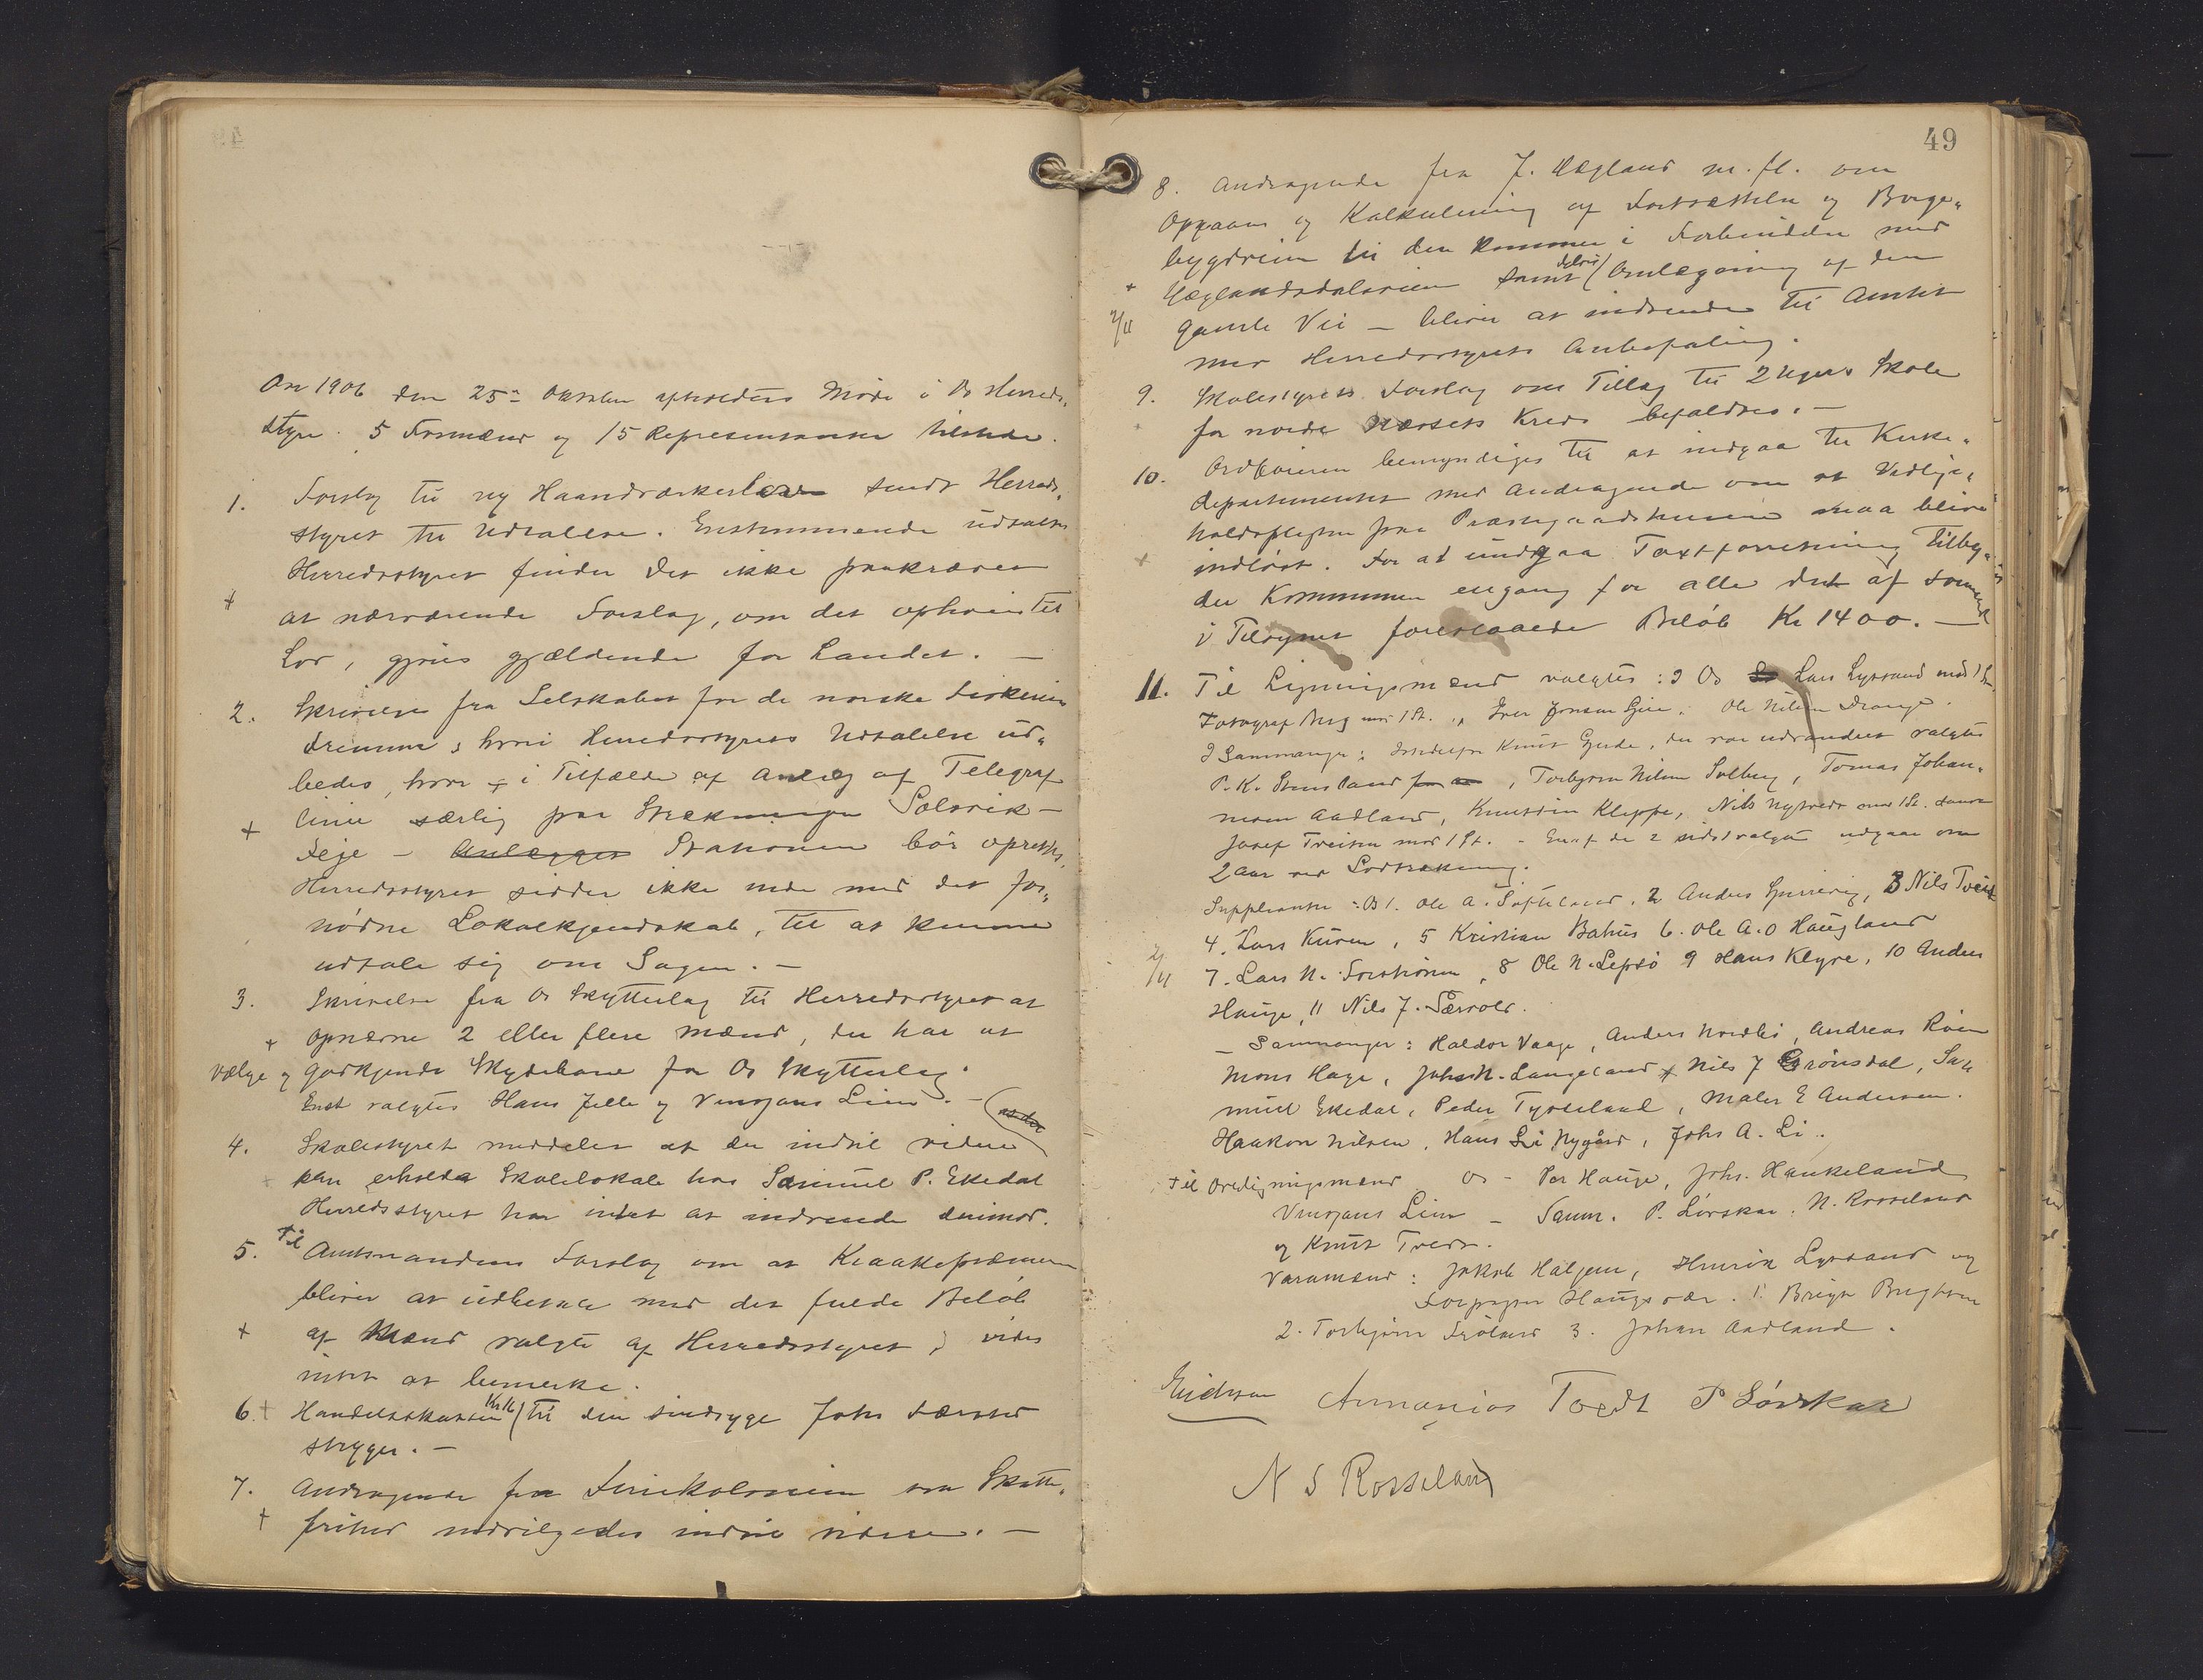 Aar 1906 den 25de Oktober afholdtes Møde i Os Herreds„
styre. 5 Formænd og 15 Repræsentanter tilstede.
1. Forslag til ny Haandværkerlov sendt Herreds„
styret til Udtalelse. Enstemmende udtaltes
Herredsstyret finder det ikke paakrævet
+ at nærværende Forslag, om det ophøies til
Lov, gjøres gjældende for Landet. —
2. Skrivelse fra Selskabet for de norske Fiskerier
fremme, hvori Herredsstyrets Udtalelse ud„
bedes, hvor i Tilfælde af Anlæg af Telegraf
+ linie særlig paa Strækningen Solsvik —
Feje — Anlægges Stationen bør oprettes,
Herredsstyret sidder ikke inde med det for„
nødne Lokalkjendskab, til at kunne
udtale sig om Sagen. —
3. Skrivelse fra Os Skytterlag til Herredsstyret at
+ opnævne 2 eller flere Mænd, der har at
vælge og godkjende Skydebane for Os Skytterlag.
Enst valgtes Hans Jelle og Vinzjans Lien. —
4. Skolestyret meddeler at der indtil videre
+ kan erholdes Skolelokale hos Samuel P. Ekedal
Herredsstyret har intet at indvende derimod.
5. Til Amtmandens Forslag om at Kraakepræmien
bliver at udbetale med det fulde Beløb
+ af Mænd valgte af Herredsstyret, vides
intet at bemerke.
6. + Handelsskatten Kr 16 til den sindsyge Johs Særsted
stryges. —
7. Andragende fra Feriekolonien om Skatte„
+ frihed indvilgedes indtil videre. —
49
8. Andragende fra J. Hegland m. fl. om
Opgaaen og Kalkulering af Fortsættelse af Borge„
bygdveien til den kommer i Forbindelse med
+ Hæglandsdalsveien samt delvis Omlægning af den
2/11 gamle Vei — bliver at indsende til Amtet
med Herredsstyrets Anbefaling.
9. Skolestyrets Forslag om Tillæg til 2 Ugers Skole
for nordre Næssets Kreds bifaldtes. —
10. Ordføreren bemyndiges til at indgaa til Kirke„
departementet med Andragende om at Vedlige„
holdspligten paa Præstegaardshusene maa blive
+ indløst. For at undgaa Taxtforretning tilby„
der Kommunen engang for alle det af Formænd
i Tilsynet foreslaaede Beløb Kr 1400. —
11. Til Ligningsmænd valgtes: I Os Lars Lyssand med 1 St.
Fotograf Berg med 1 St., Iver Jonsen Gjøn. Ole Nilsen Drange.
I Sammanger: Istedetfor Knut Gjerde, der var udvandret valgtes
P. K. Stensland, Torbjørn Nilsen Solberg, Tomas Johan„
nesen Aadland, Knut Klyppe, Nils Nytveit med 1 St. samt
Josef Tveiten med 1 St. — En af de 2 sidstvalgte udgaar om
2 Aar ved Lodtrækning.
Suppleanter: Os 1. Ole A. Søfteland, 2 Anders Gjerevig, 3 Nils Tveit
4. Lars Kuven, 5 Kristian Bahus 6. Ole A. O Haugland
2/11 7. Lars N. Forstrønen, 8 Ole N. Lepsø 9 Hans Klyve, 10 Anders
Hauge, 11 Nils J. Særvold.
— Sammanger: Haldor Vaage, Anders Nordbø, Andreas Røen
Mons Hage, Johs N. Langeland, Nils J Grønsdal, Sa„
muel Ekedal, Peder Tysseland, Maler E Andersen.
Haakon Nilsen, Hans Li Nygård, Johs A. Li.
Til Overligningsmænd Os — Per Hauge, Johs. Haukeland
Vinzjans Lien — Samn. P. Lørskar. N. Rosseland
og Knut Tveit.
Varamænd: Jakob Haljem, Henrik Lyssand og
Forpagter Haugsvær. 1. Brigt Brigtsen
2. Torbjørn Frøland 3. Johan Aadland.
Erichsen Annanias Tvedt P Lørskar
N S Rosseland